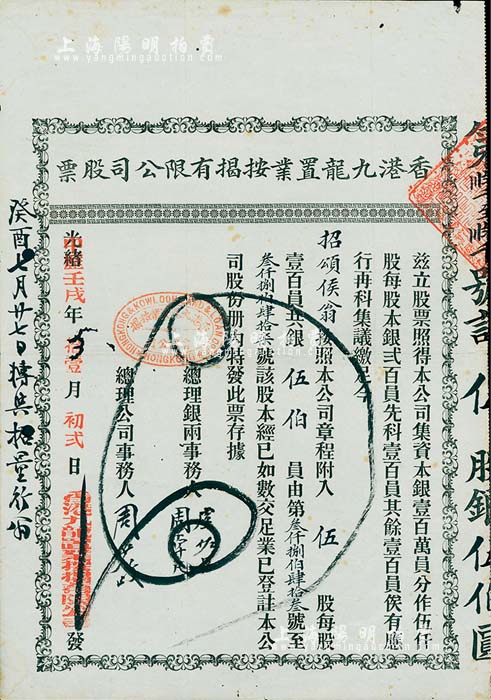 上海陽明拍賣
www.yangmingauction.com
香港九龍置業按揭有限公司股票
號計 伍 股銀伍伯圓
茲立股票照得本公司集資本銀壹百萬員分作伍仟
股每股本銀弍百員先科壹百員其餘壹百員俟有應
行再科集議繳足今
招頌侯翁 按照本公司章程附入 伍 股每股
壹百員共銀 伍伯 員由第叄仟捌伯肆拾叄號至
叄仟捌伯肆拾 號該股本經已如數交足業已登註本公
司股份册內特發此票存據
總理銀兩事務人 周
總理公司事務人 周
光緒 壬戌 年 壹 月 初弍 日 發
癸酉七月廿七日轉與招量行翁